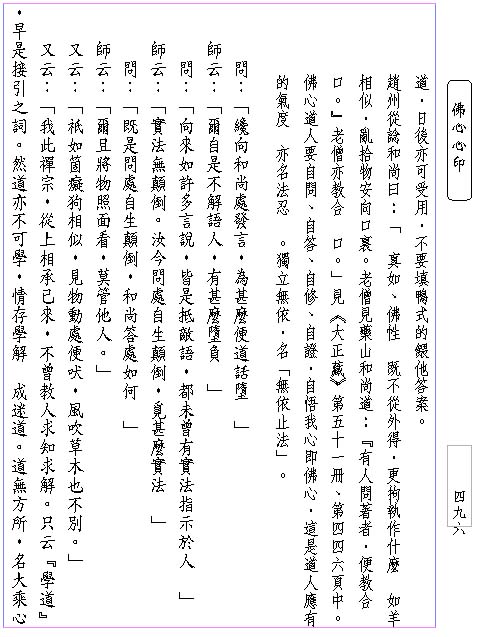 佛心心印
四九六
道，日後亦可愛用，不要填鴨式的餵他答案。
趙州從諗和尚曰：「　真如、佛性　既不從外得，更拘執作什麼　如羊
相似，亂拾物安向口裏。老僧見藥山和尚道：『有人問著者，便教合
口。』老僧亦教合　口。」見《大正藏》第五十一冊、第四四六頁中。
佛心道人要自問、自答、自修、自證，自悟我心即佛心，這是道人應有
的氣度　亦名法忍　。獨立無依，名「無依止法」。
問：「纔向和尚處發言，為甚麼便道話墮　」
師云：「爾自是不解語人，有甚麼墮負　」
問：「向來如許多言說，皆是抵敵語，都未曾有實法指示於人　」
師云：「實法無顛倒。汝今問處自生顛倒，覓甚麼實法　」
問：「既是問處自生顛倒，和尚答處如何　」
師云：「爾且將物照面看，莫管他人。」
又云：「祇如箇癡狗相似，見物動處便吠，風吹草木也不別。」
又云：「我此禪宗，從上相承已來，不曾教人求知求解。只云『學道』
，早是接引之詞。然道亦不可學，情存學解　成迷道。道無方所，名大乘心